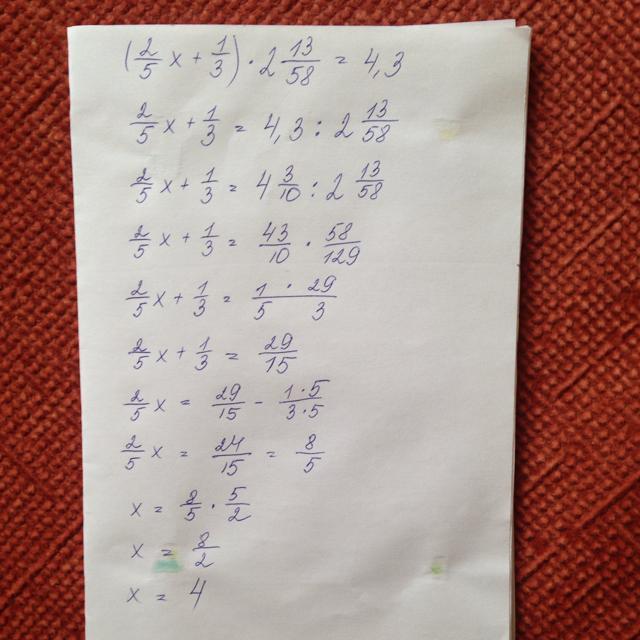 (2/5 x + 1/3) · 2 13/58 = 4,3
2/5 x + 1/3 = 4,3 : 2 13/58
2/5 x + 1/3 = 4 3/10 : 2 13/58
2/5 x + 1/3 = 43/10 · 58/129
2/5 x + 1/3 = 1 · 29 / 5 3
2/5 x + 1/3 = 29/15
2/5 x = 29/15 - 1·5/3·5
2/5 x = 24/15 = 8/5
x = 8/5 · 5/2
x = 8/2
x = 4